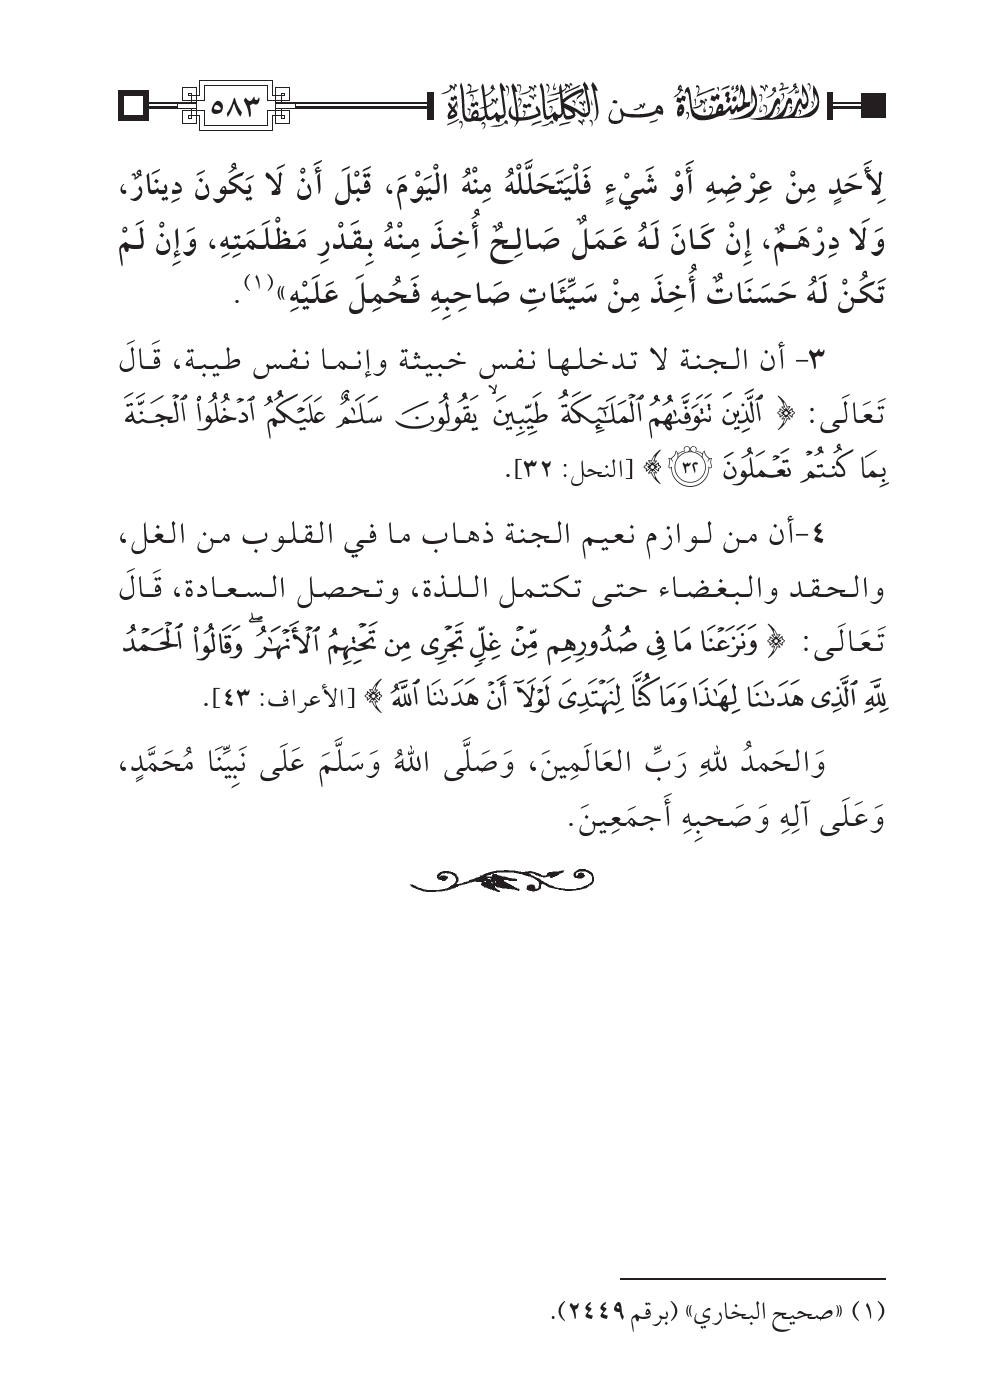 الدرر المنتقاة من الكلمات الملقاة
٥٨٣
لِأَحَدٍ مِنْ عِرْضِهِ أَوْ شَيْءٍ فَلْيَتَحَلَّلْهُ مِنْهُ الْيَوْمَ، قَبْلَ أَنْ لَا يَكُونَ دِينَارٌ،
وَلَا دِرْهَمٌ، إِنْ كَانَ لَهُ عَمَلٌ صَالِحٌ أُخِذَ مِنْهُ بِقَدْرِ مَظْلَمَتِهِ، وَإِنْ لَمْ
تَكُنْ لَهُ حَسَنَاتٌ أُخِذَ مِنْ سَيِّئَاتِ صَاحِبِهِ فَحُمِلَ عَلَيْهِ»(١).
٣- أن الجنة لا تدخلها نفس خبيثة وإنما نفس طيبة، قَالَ
تَعَالَى: ﴿ ٱلَّذِينَ تَتَوَفَّىٰهُمُ ٱلْمَلَٰٓئِكَةُ طَيِّبِينَ ۙ يَقُولُونَ سَلَٰمٌ عَلَيْكُمُ ٱدْخُلُوا۟ ٱلْجَنَّةَ
بِمَا كُنتُمْ تَعْمَلُونَ ٣٢ ﴾ [النحل: ٣٢].
٤-أن من لوازم نعيم الجنة ذهاب ما في القلوب من الغل،
والحقد والبغضاء حتى تكتمل اللذة، وتحصل السعادة، قَالَ
تَعَالَى: ﴿ وَنَزَعْنَا مَا فِى صُدُورِهِم مِّنْ غِلٍّ تَجْرِى مِن تَحْتِهِمُ ٱلْأَنْهَٰرُ ۖ وَقَالُوا۟ ٱلْحَمْدُ
لِلَّهِ ٱلَّذِى هَدَىٰنَا لِهَٰذَا وَمَا كُنَّا لِنَهْتَدِىَ لَوْلَآ أَنْ هَدَىٰنَا ٱللَّهُ ﴾ [الأعراف: ٤٣].
وَالحَمدُ للهِ رَبِّ العَالَمِينَ، وَصَلَّى اللهُ وَسَلَّمَ عَلَى نَبِيِّنَا مُحَمَّدٍ،
وَعَلَى آلِهِ وَصَحبِهِ أَجمَعِينَ.
(١) «صحيح البخاري» (برقم ٢٤٤٩).